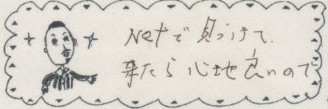 Netで見つけて
来たら心地良いので